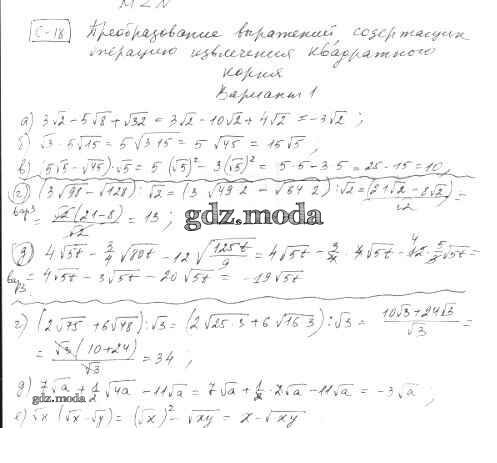 С-18 Преобразование выражений, содержащих
операцию извлечения квадратного
корня
Вариант 1
а) 3√2 - 5√8 + √32 = 3√2 - 10√2 + 4√2 = -3√2 ;
б) √3 · 5√15 = 5√3·15 = 5√45 = 15√5 ,
в) (5√5 - √45)·√5 = 5(√5)² - 3(√5)² = 5·5 - 3·5 = 25 - 15 = 10,
г) (3√98 - √128) : √2 = (3√49·2 - √64·2) : √2 = (21√2 - 8√2)/√2 =
вар3 = √2(21-8)/√2 = 13 ;
gdz.moda
д) 4√5t - 3/4 √80t - 12√125t/9 = 4√5t - 3/4 · 4√5t - 12 · 5/3 √5t =
вар3. = 4√5t - 3√5t - 20√5t = -19√5t
г) (2√75 + 6√48) : √3 = (2√25·3 + 6√16·3) : √3 = (10√3 + 24√3)/√3 =
= √3(10+24)/√3 = 34 ;
д) 7√a + 1/2 √4a - 11√a = 7√a + 1/2 · 2√a - 11√a = -3√a ;
gdz.moda
е) √x (√x - √y) = (√x)² - √xy = x - √xy